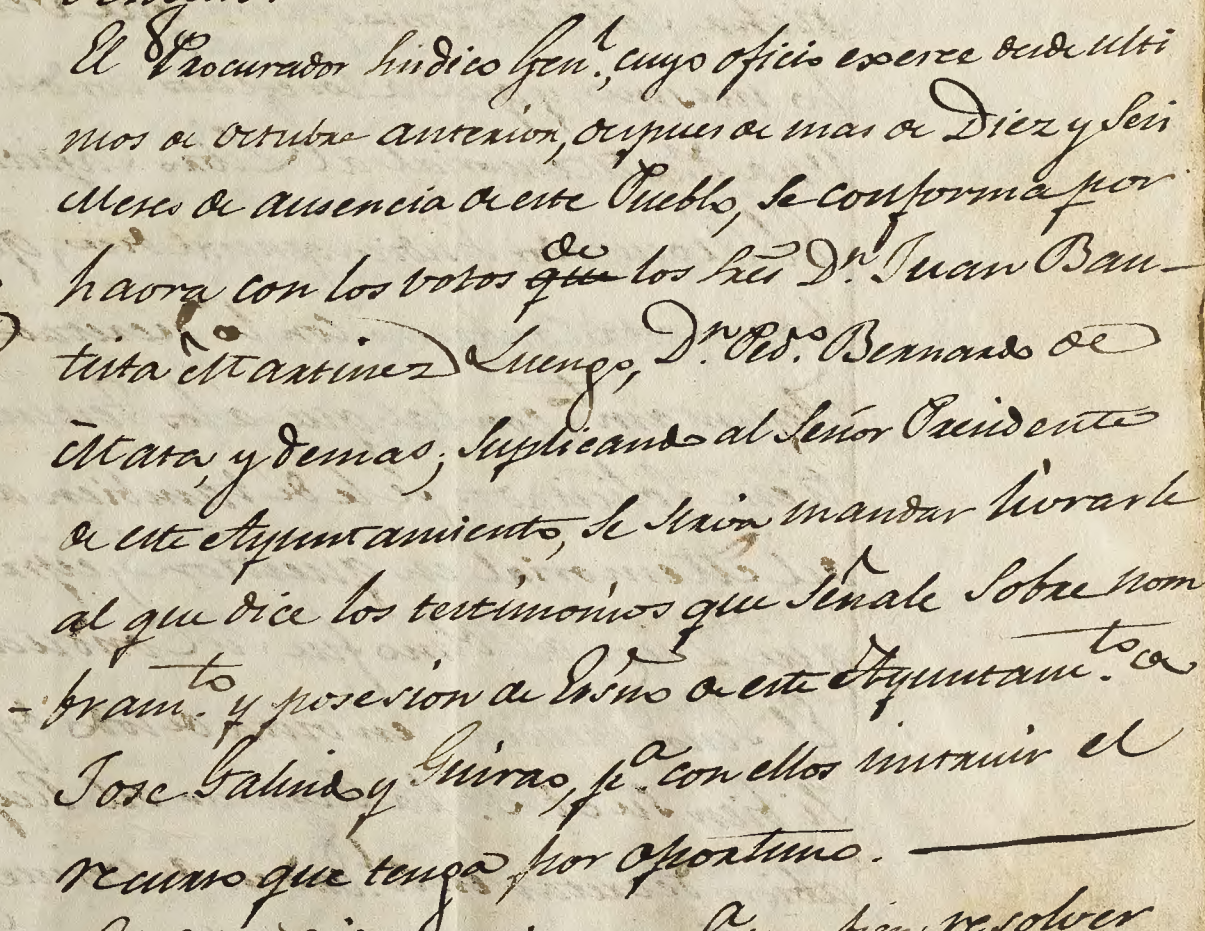 El Procurador Sindico Gen.l, cuyo oficio exerce desde ulti
mos de Octubre anterior, despues de mas de Diez y Seis
Meses de ausencia de este Pueblo, Se conforma por
haora con los votos que de los Sres Dn. Juan Bau-
tista Martinez Luengo, Dn. Ped.o Bernardo de
Mata, y demas; Suplicando al Señor Presidente
de este Ayuntamiento, Se sirva mandar librarle
al que dice los testimonios que Señale Sobre nom
bram.to y posesion de Essno de este Ayuntam.to de
Jose Galindo y Guirao, p.a con ellos instruir el
recurso que tenga por oportuno.
resolver